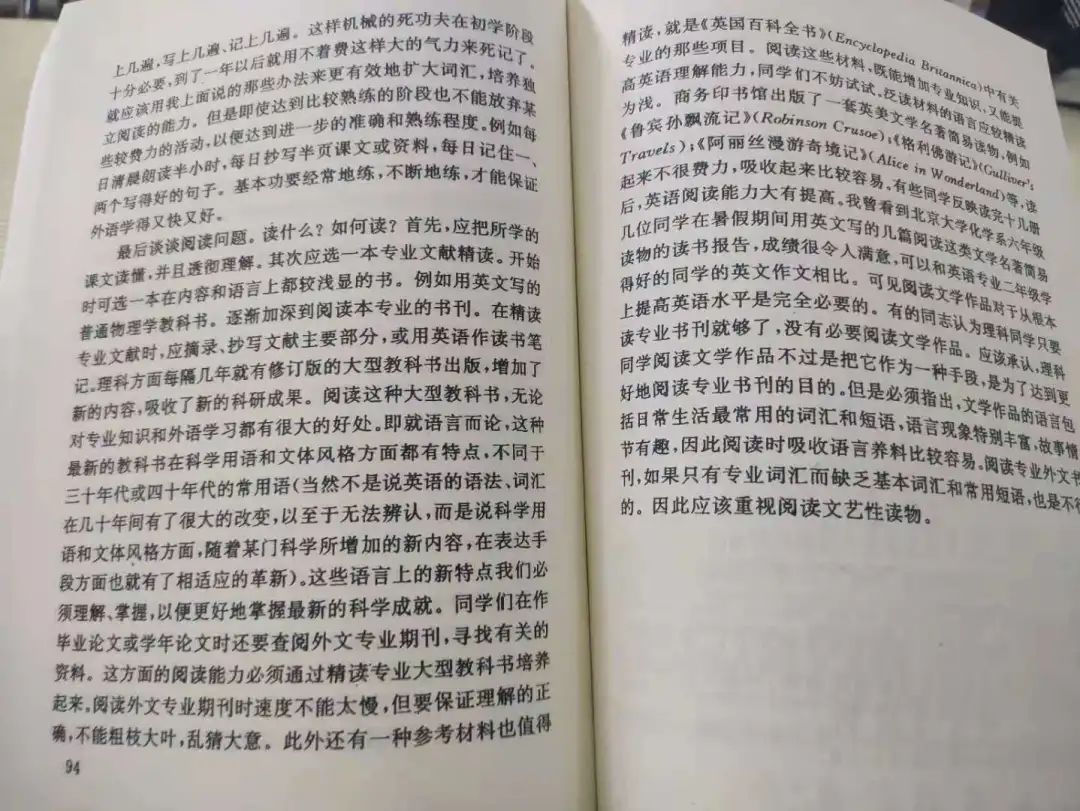 上几遍,写上几遍、记上几遍。这样机械的死功夫在初学阶段
十分必要,到了一年以后就用不着费这样大的气力来死记了。
就应该用我上面说的那些办法来更有效地扩大词汇,培养独
立阅读的能力。但是即使达到比较熟练的阶段也不能放弃某
些较费力的活动,以便达到进一步的准确和熟练程度。例如每
日清晨朗读半小时,每日抄写半页课文或资料,每日记住一、
两个写得好的句子。基本功要经常地练,不断地练,才能保证
外语学得又快又好。
最后谈谈阅读问题。读什么?如何读?首先,应把所学的
课文读懂,并且透彻理解。其次应选一本专业文献精读。开始
时可选一本在内容和语言上都较浅显的书。例如用英文写的
普通物理学教科书。逐渐加深到阅读本专业的书刊。在精读
专业文献时,应摘录、抄写文献主要部分,或用英语作读书笔
记。理科方面每隔几年就有修订版的大型教科书出版,增加了
新的内容,吸收了新的科研成果。阅读这种大型教科书,无论
对专业知识和外语学习都有很大的好处。即就语言而论,这种
最新的教科书在科学用语和文体风格方面都有特点,不同于
三十年代或四十年代的常用语(当然不是说英语的语法、词汇
在几十年间有了很大的改变,以至于无法辨认,而是说科学用
语和文体风格方面,随着某门科学所增加的新内容,在表达手
段方面也就有了相适应的革新)。这些语言上的新特点我们必
须理解、掌握,以便更好地掌握最新的科学成就。同学们在作
毕业论文或学年论文时还要查阅外文专业期刊,寻找有关的
资料。这方面的阅读能力必须通过精读专业大型教科书培养
起来。阅读外文专业期刊时速度不能太慢,但要保证理解的正
确,不能粗枝大叶,乱猜大意。此外还有一种参考材料也值得
94
精读,就是《英国百科全书》(Encyclopedia Britannica)中有关
专业的那些项目。阅读这些材料,既能增加专业知识,又能提
高英语理解能力,同学们不妨试试。泛读材料的语言应较精读
为浅。商务印书馆出版了一套英美文学名著简易读物,例如
《鲁宾孙飘流记》(Robinson Crusoe);《格利佛游记》(Gulliver's
Travels);《阿丽丝漫游奇境记》(Alice in Wonderland)等,读
起来不很费力,吸收起来比较容易。有些同学反映读完十几册
后,英语阅读能力大有提高。我曾看到北京大学化学系六年级
几位同学在暑假期间用英文写的几篇阅读这类文学名著简易
读物的读书报告,成绩很令人满意,可以和英语专业二年级学
得好的同学的英文作文相比。可见阅读文学作品对于从根本
上提高英语水平是完全必要的。有的同志认为理科同学只要
读专业书刊就够了,没有必要阅读文学作品。应该承认,理科
同学阅读文学作品不过是把它作为一种手段,是为了达到更
好地阅读专业书刊的目的。但是必须指出,文学作品的语言包
括日常生活最常用的词汇和短语,语言现象特别丰富,故事情
节有趣,因此阅读时吸收语言养料比较容易。阅读专业外文书
刊,如果只有专业词汇而缺乏基本词汇和常用短语,也是不行
的。因此应该重视阅读文艺性读物。